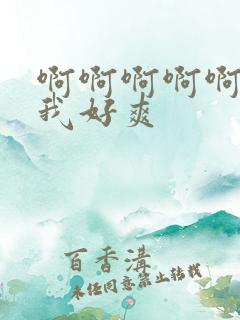 啊啊啊啊啊
我好爽
百香溝
未经同意禁止转载